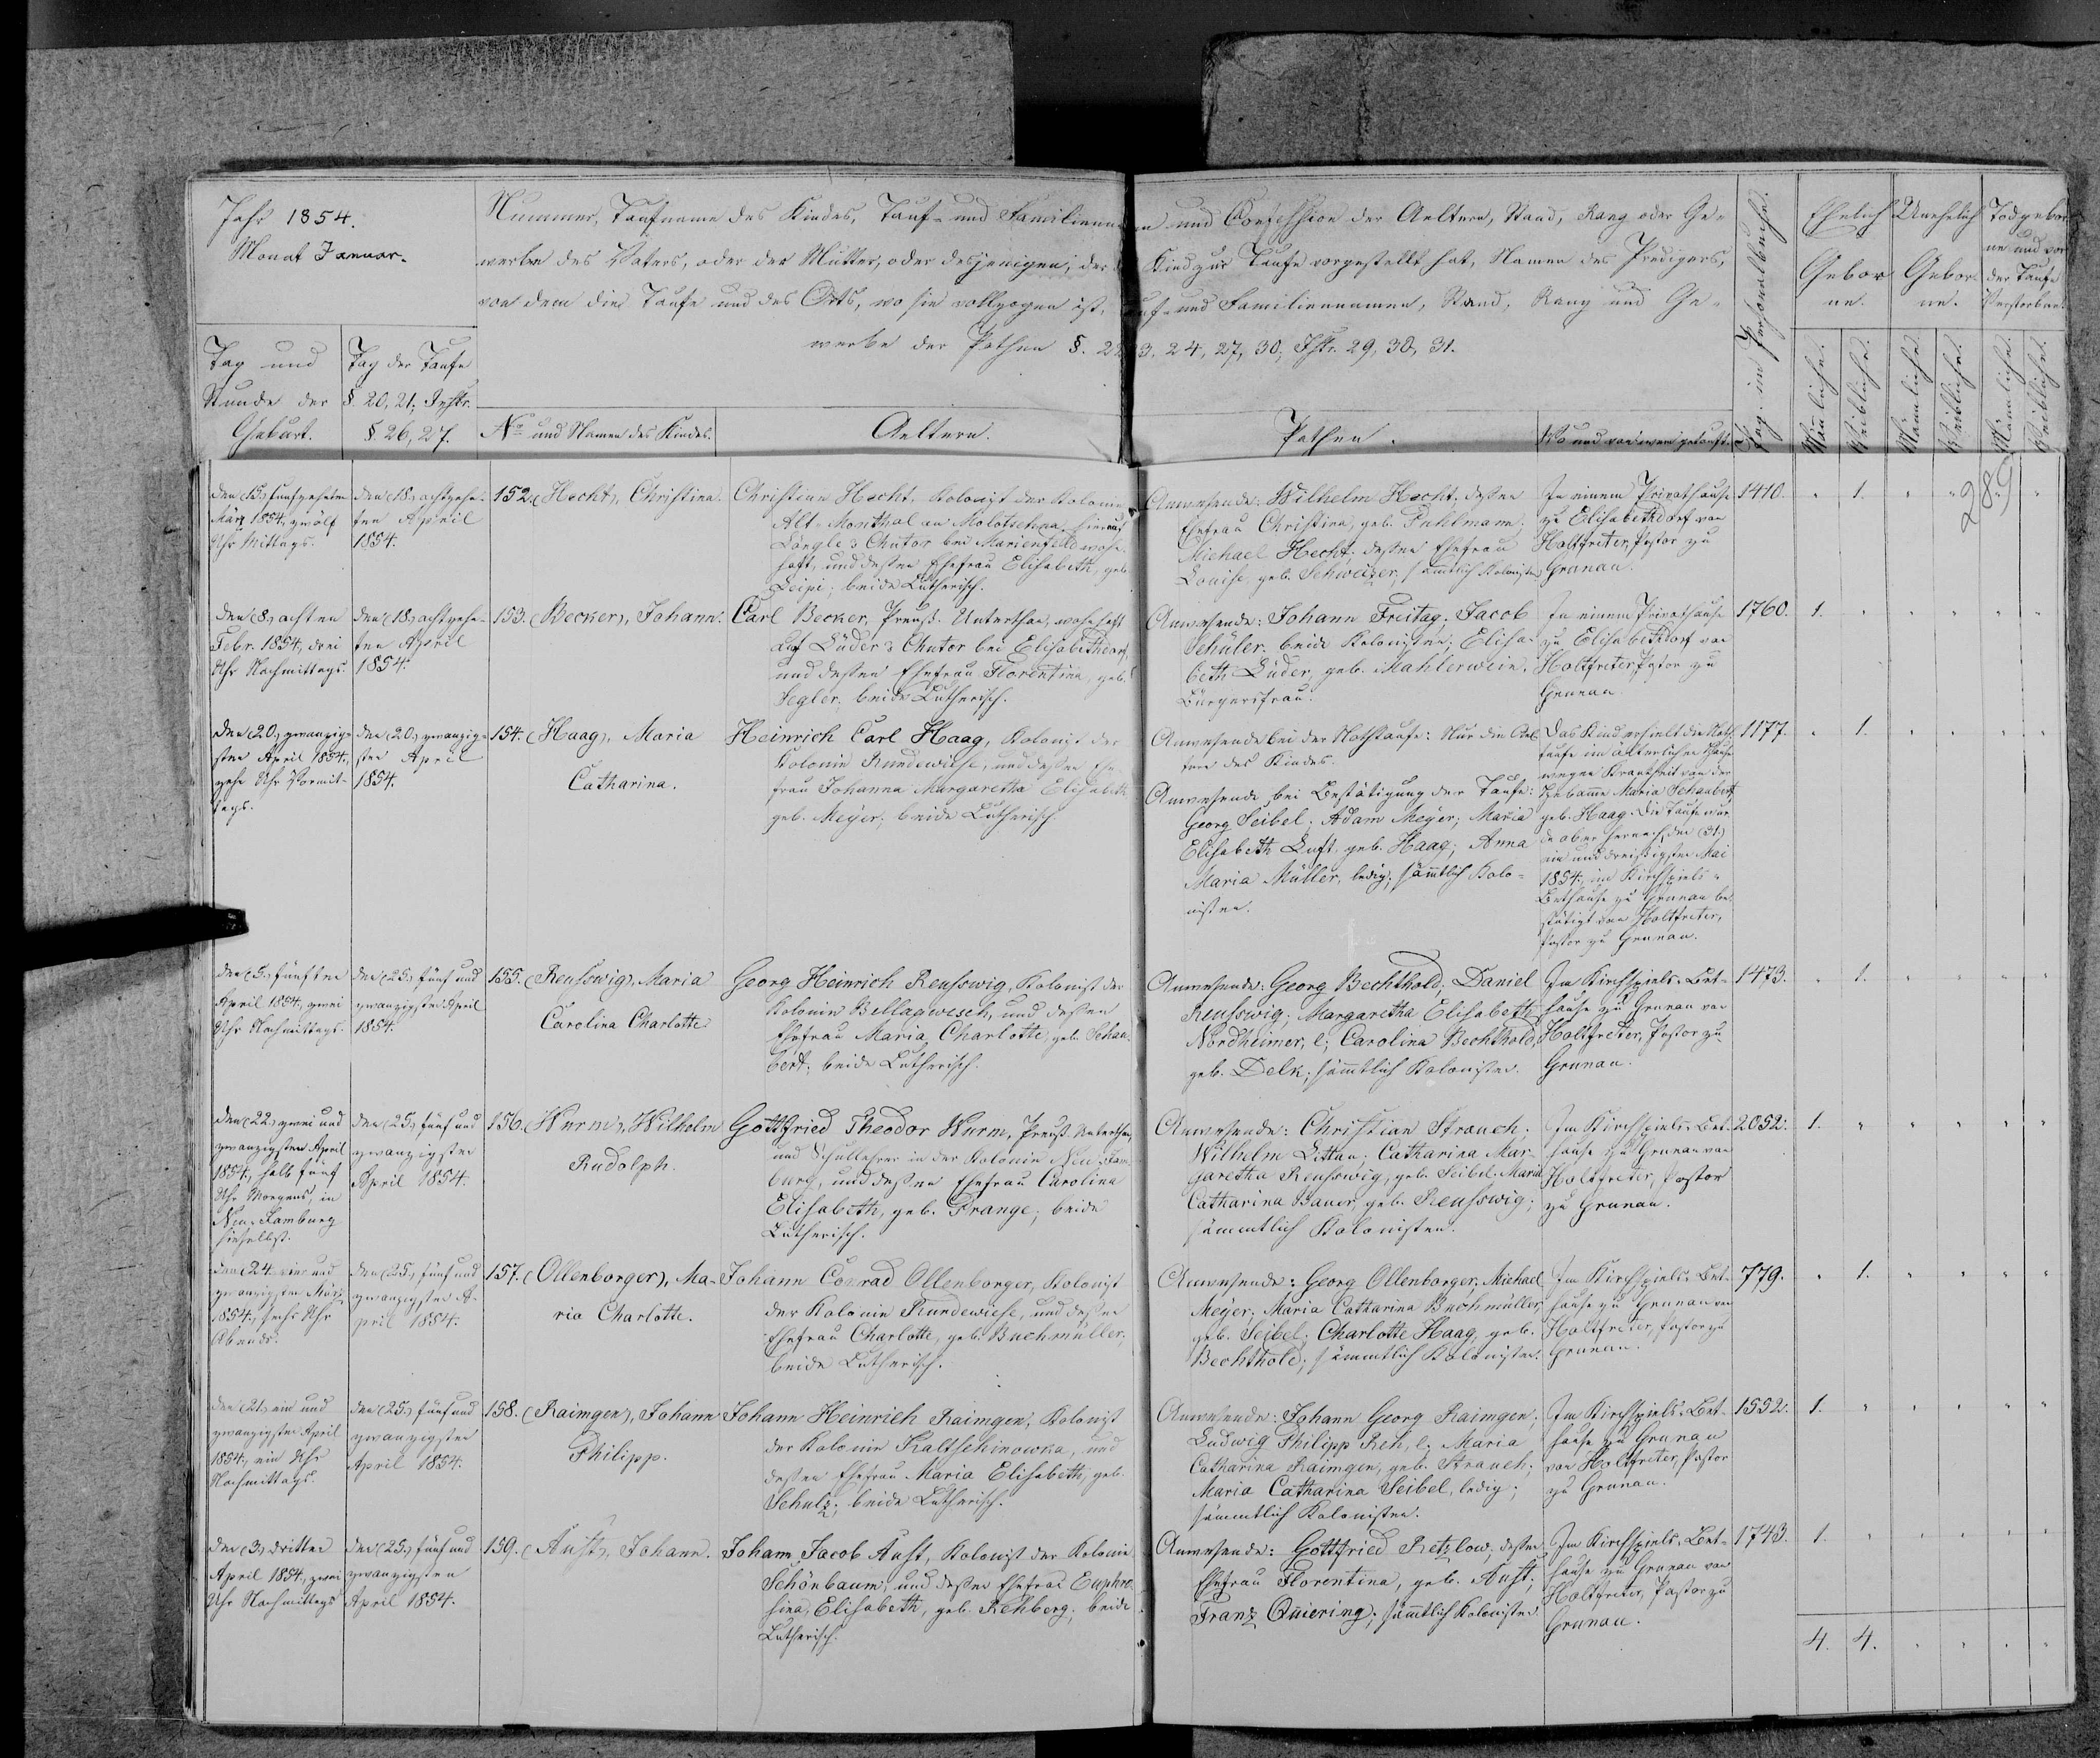 Jahr 1854.
Monat Januar.
Tag und
Stunde der
Geburt.
Tag der Taufe
§. 20, 21; Instr.
§. 26, 27.
Nummer, Taufname des Kindes, Tauf- und Familiennamen und Confession der Aeltern, Stand, Rang oder Ge-
werbe des Vaters, oder der Mutter, oder desjenigen, der das Kind zur Taufe vorgestellt hat, Namen des Predigers,
von dem die Taufe und des Orts, wo sie vollzogen ist, Tauf- und Familiennamen, Stand, Rang und Ge-
werbe der Pathen §. 22, 23, 24, 27, 30; Istr. 29, 30, 31.
No und Namen des Kindes.
Aeltern.
Pathen.
Wo und von wem getauft.
Pag. im Personalbuche.
Ehelich
Gebor
ne.
Unehelich
Gebor
ne.
Todgebor
ne und vor
der Taufe
Verstorbene.
Männliche.
Weibliche.
Männliche.
Weibliche.
Männliche.
Weibliche.
289
den (15.) fünfzehnten
März 1854, zwölf
Uhr Mittags.
den (18.) achtzehn-
ten April
1854.
152. (Hecht), Christina.
Christian Hecht, Kolonist der Kolonie
Alt-Monthal an Molotschna, hierauf
Längle's Chutor bei Marienfeld wohn-
haft, und dessen Ehefrau Elisabeth, geb.
Zeipi; beide Lutherisch.
Anwesende: Wilhelm Hecht, dessen
Ehefrau Christina, geb. Puhlmann;
Michael Hecht, dessen Ehefrau
Louise, geb. Schweizer; sämtlich Kolonisten.
In einem Privathause
zu Elisabethdorf von
Holtfreter, Pastor zu
Grunau.
1410. " 1. " " " "
den (8.) achten
Febr. 1854, drei
Uhr Nachmittags.
den (18.) achtzehn-
ten April
1854.
153. (Becker), Johann.
Carl Becker, Preuß. Unterthan, wohnhaft
auf Lüder's Chutor bei Elisabethdorf,
und dessen Ehefrau Florentina, geb.
Segler; beide Lutherisch.
Anwesende: Johann Freitag; Jacob
Schüler, beide Kolonisten; Elisa-
beth Lüder, geb. Mahlerwein,
Bürgersfrau.
In einem Privathause
zu Elisabethdorf von
Holtfreter, Pastor zu
Grunau.
1760. 1. " " " " "
den (20.) zwanzig-
sten April 1854,
zehn Uhr Vormit-
tags.
den (20.) zwanzig-
sten April
1854.
154. (Haag), Maria
Catharina.
Heinrich Carl Haag, Kolonist der
Kolonie Rundewiese, und dessen Ehe-
frau Johanna Margaretha Elisabeth
geb. Meyer; beide Lutherisch
Anwesende bei der Nothtaufe: Nur die Ael-
tern des Kindes.
Anwesende bei Bestätigung der Taufe:
Georg Seibel; Adam Meyer; Maria
Elisabeth Luft, geb. Haag; Anna
Maria Müller, ledig; sämtlich Kolo-
nisten.
Das Kind erhielt die Noth-
taufe im älterlichen Hause
wegen Krankheit von der
Hebamme Maria Schaubert,
geb. Haag. Die Taufe wur-
de aber hernach, den (31.)
ein und dreißigsten Mai
1854, im Kirchspiels-
Bethause zu Grunau be-
stätigt von Holtfreter,
Pastor zu Grunau.
1177. " 1. " " " "
den (5.) fünften
April 1854, zwei
Uhr Nachmittags.
den (25.) fünf und
zwanzigsten April
1854.
155. (Reusswig), Maria
Carolina Charlotte.
Georg Heinrich Reusswig, Kolonist der
Kolonie Bellagwesch, und dessen
Ehefrau Maria Charlotte, geb. Schau-
bert; beide Lutherisch.
Anwesende: Georg Bechthold; Daniel
Reusswig; Margaretha Elisabeth
Nordheimer, l; Carolina Bechthold,
geb. Delk; sämtlich Kolonisten.
Im Kirchspiels-Bet-
hause zu Grunau von
Holtfreter, Pastor zu
Grunau.
1473. " 1. " " " "
den (22.) zwei und
zwanzigsten April
1854, halb fünf
Uhr Morgens, in
Neu-Jamburg
hieselbst.
den (25.) fünf und
zwanzigsten
April 1854.
156. (Wurm), Wilhelm
Rudolph.
Gottfried Theodor Wurm, Preuß. Unterthan,
und Schullehrer in der Kolonie Neu-Jam-
burg, und dessen Ehefrau Carolina
Elisabeth, geb. Prange; beide
Lutherisch.
Anwesende: Christian Strauch;
Wilhelm Littau; Catharina Mar-
garetha Reusswig, geb. Seibel; Maria
Catharina Bauer, geb. Reusswig;
sämmtlich Kolonisten.
Im Kirchspiels-Bet-
hause zu Grunau von
Holtfreter, Pastor
zu Grunau.
2052. 1. " " " " "
den (24.) vier und
zwanzigsten März
1854, sechs Uhr
Abends.
den (25.) fünf und
zwanzigsten A-
pril 1854.
157. (Ollenborger), Ma-
ria Charlotte.
Johann Conrad Ollenborger, Kolonist
der Kolonie Rundewiese, und dessen
Ehefrau Charlotte, geb. Buchmüller;
beide Lutherisch.
Anwesende: Georg Ollenborger; Michael
Meyer; Maria Catharina Buchmüller,
geb. Seibel; Charlotte Haag, geb.
Bechthold; sämmtlich Kolonisten.
Im Kirchspiels-Bet-
hause zu Grunau von
Holtfreter, Pastor zu
Grunau.
779. " 1. " " " "
den (21.) ein und
zwanzigsten April
1854, ein Uhr
Nachmittags.
den (25.) fünf und
zwanzigsten
April 1854.
158. (Raimgen), Johann
Philipp.
Johann Heinrich Raimgen, Kolonist
der Kolonie Kaltschinowka, und
dessen Ehefrau Maria Elisabeth, geb.
Schulz; beide Lutherisch.
Anwesende: Johann Georg Raimgen;
Ludwig Philipp Reh, l; Maria
Catharina Raimgen, geb. Strauch;
Maria Catharina Seibel, ledig;
sämmtlich Kolonisten.
Im Kirchspiels-Bet-
hause zu Grunau
von Holtfreter, Pastor
zu Grunau.
1552. 1. " " " " "
den (3.) dritten
April 1854, zwei
Uhr Nachmittags
den (25.) fünf und
zwanzigsten
April 1854.
159. (Aust), Johann.
Johann Jacob Aust, Kolonist der Kolonie
Schönbaum, und dessen Ehefrau Euphro-
sina Elisabeth, geb. Rehberg; beide
Lutherisch.
Anwesende: Gottfried Retzlow, dessen
Ehefrau Florentina, geb. Aust;
Franz Quiering; sämtlich Kolonisten.
Im Kirchspiels-Bet-
hause zu Grunau von
Holtfreter, Pastor zu
Grunau.
1743. 1. " " " " "
4. 4. " " " "